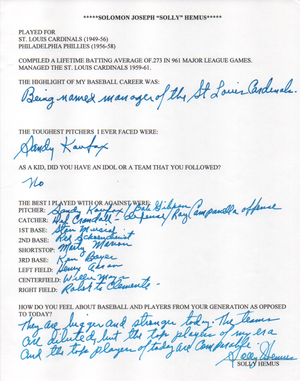 *****SOLOMON JOSEPH "SOLLY" HEMUS*****
PLAYED FOR
ST. LOUIS CARDINALS (1949-56)
PHILADELPHIA PHILLIES (1956-58)
COMPILED A LIFETIME BATTING AVERAGE OF.273 IN 961 MAJOR LEAGUE GAMES.
MANAGED THE ST. LOUIS CARDINALS 1959-61.
THE HIGHLIGHT OF MY BASEBALL CAREER WAS:
Being named manager of the St Louis Cardinals.
THE TOUGHEST PITCHERS I EVER FACED WERE:
Sandy Koufax
AS A KID, DID YOU HAVE AN IDOL OR A TEAM THAT YOU FOLLOWED?
No
THE BEST I PLAYED WITH OR AGAINST WERE:
PITCHER: Sandy Koufax / Bob Gibson
CATCHER: Del Crandall - defense / Roy Campanella offense
1ST BASE: Stan Musial
2ND BASE: Red Schoendienst
SHORTSTOP: Marty Marion
3RD BASE: Ken Boyer
LEFT FIELD: Henry Aaron
CENTERFIELD: Willie Mays
RIGHT FIELD: Roberto Clemente
HOW DO YOU FEEL ABOUT BASEBALL AND PLAYERS FROM YOUR GENERATION AS OPPOSED
TO TODAY?
They are bigger and stronger today. The teams
are diluted, but the top players of my era
and the top players of today are comparable
Solly Hemus
SOLLY HEMUS